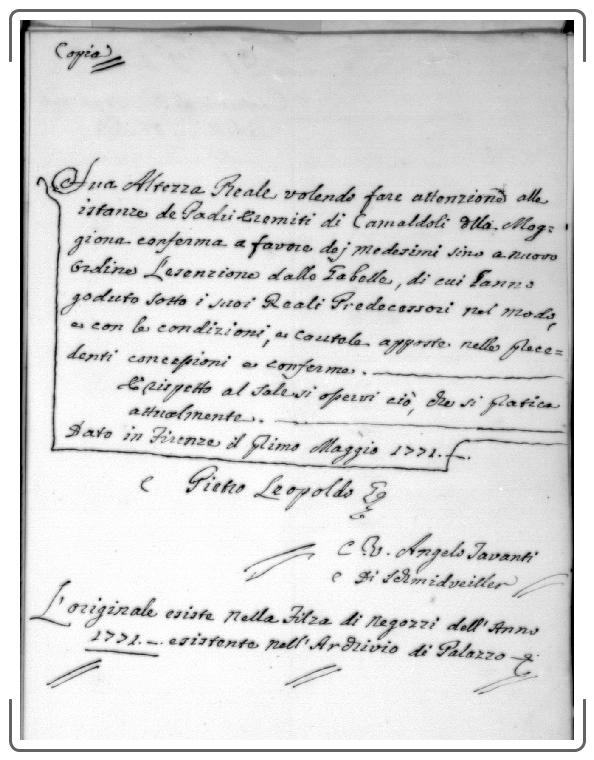 Copia
Sua Altezza Reale volendo fare attenzione alle
istanze de Padri Eremiti di Camaldoli della Mog=
giona conferma a favore dej medesimi sino a nuovo
ordine l'esenzione dalle Tabelle, di cui hanno
goduto sotto i suoi Reali Predecessori nel modo,
e con le condizioni, e cautele apposte nelle prece=
denti concessioni e conferme.
E rispetto al sale si osservi ciò, che si pratica
attualmente.
Dato in Firenze il primo Maggio 1771.
Pietro Leopoldo
V. Angelo Tavanti
Di Schmidveiller
L'originale esiste nella Filza di negozzi dell'Anno
1771. esistente nell'Archivio di Palazzo